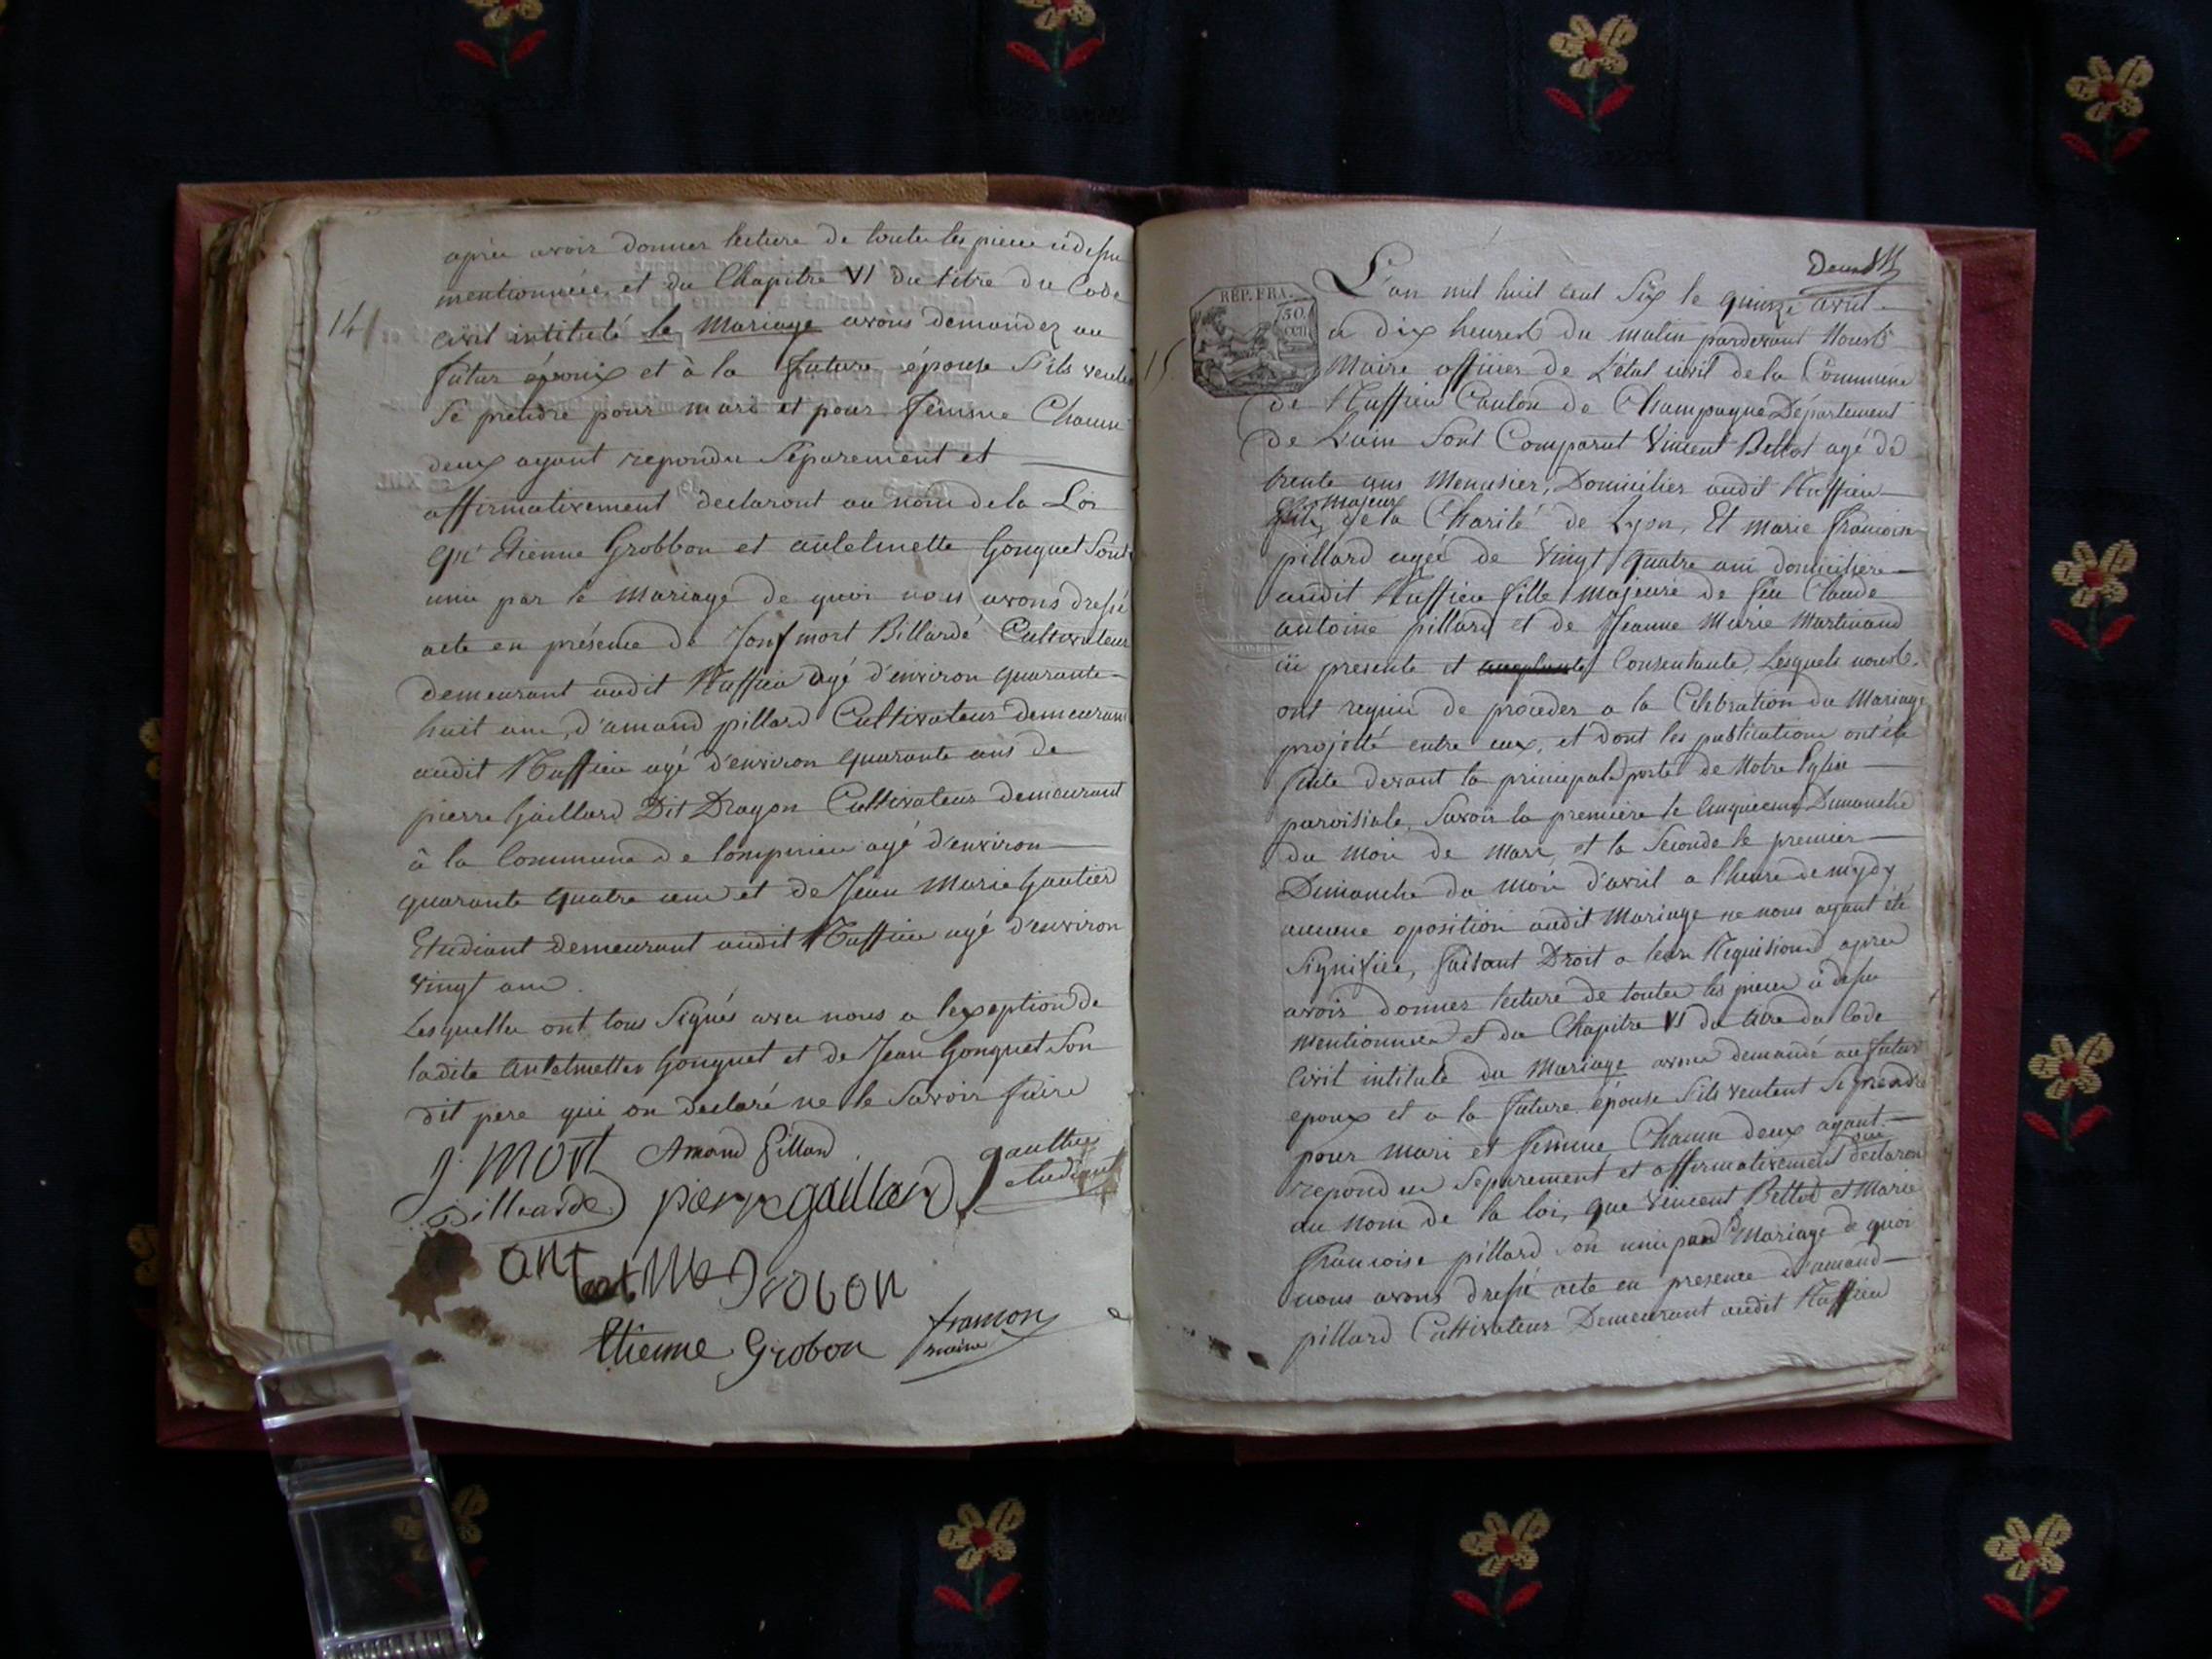 après avoir donner lecture de toute les piece cidessu
mentionnées et du Chapitre VI du titre du Code
14
civil intitulé le Mariage avons demandez au
futur époux et à la future épouse S'ils veule
Se prendre pour mari et pour femme Chacun
deux ayant repondu Séparement et
affirmativement declaront au nom de la Loi
qu'Etienne Grobbon et antelmette Gonguet Sont
unis par le mariage de quoi nous avons dressé
acte en présence de Josef mort Billarde Cultivateur
demeurant audit Ruffieu agé d'environ quarante
huit ans, d'amand pillard Cultivateur demeurant
audit Ruffieu agé d'environ quarante ans de
pierre Gaillard Dit Dragon Cultivateur demeurant
à la Commune de lompnieu agé d'environ
quarante quatre ans et de Jean Marie Gautier
Etudiant demeurant audit Ruffieu agé d'environ
vingt ans.
Lesquelles ont tous Signés avec nous a l'exeption de
ladite Antelmettes Gonguet et de Jean Gonguet Son
dit pere qui on declaré ne le Savoir faire
J. MORT Amand Pillard gaultier
Billarde pierre gaillard etudiant
ant Grobon
Etienne Grobon framon
maire
REP. FRA.
50.
cen
15
L'an mil huit cent Six le quinze avril
a dix heures du matin pardevant Nous
Maire officier de L'état civil de la Commune
de Ruffieu Canton de Champagne Département
de L'ain Sont Comparut Vincent Bellot agé de
trente ans Menusier, Domicilier audit Ruffieu
majeur
fils de la Charité de Lyon, Et marie francoise
pillard agée de vingt quatre ans domicilière
audit Ruffieu fille majeure de feu Claude
antoine pillard et de Jeanne Marie Martinand
ici presente et Consentante, Lesquels nous
ont requis de proceder a la Célébration du Mariage
projetté entre eux, et dont les publications ont été
faite devant la principale porte de Notre Eglise
paroisiale, Savoir la premiere le cinquieme Dimanche
du Mois de Mars, et la Seconde le premier
Dimanche du mois d'avril a l'heure de mydy
aucune oposition audit Mariage ne nous ayant été
Signifiée, faisant Droit a leur Requision apres
avoir donner lecture de toutes les pieces ci dessu
mentionnées et du Chapitre VI du titre du Code
Civil intitulé du Mariage avons demandé au futur
epoux et a la future épouse S'ils veulent Se prendre
pour mari et femme, Chacun deux ayant
repondu Séparement et affirmativement declaron
au nom de la loi, que Vincent Bellot et Marie
francoise pillard son unis par Mariage de quoi
nous avons dressé acte en presence d'amand
pillard Cultivateur Demeurant audit Ruffieu